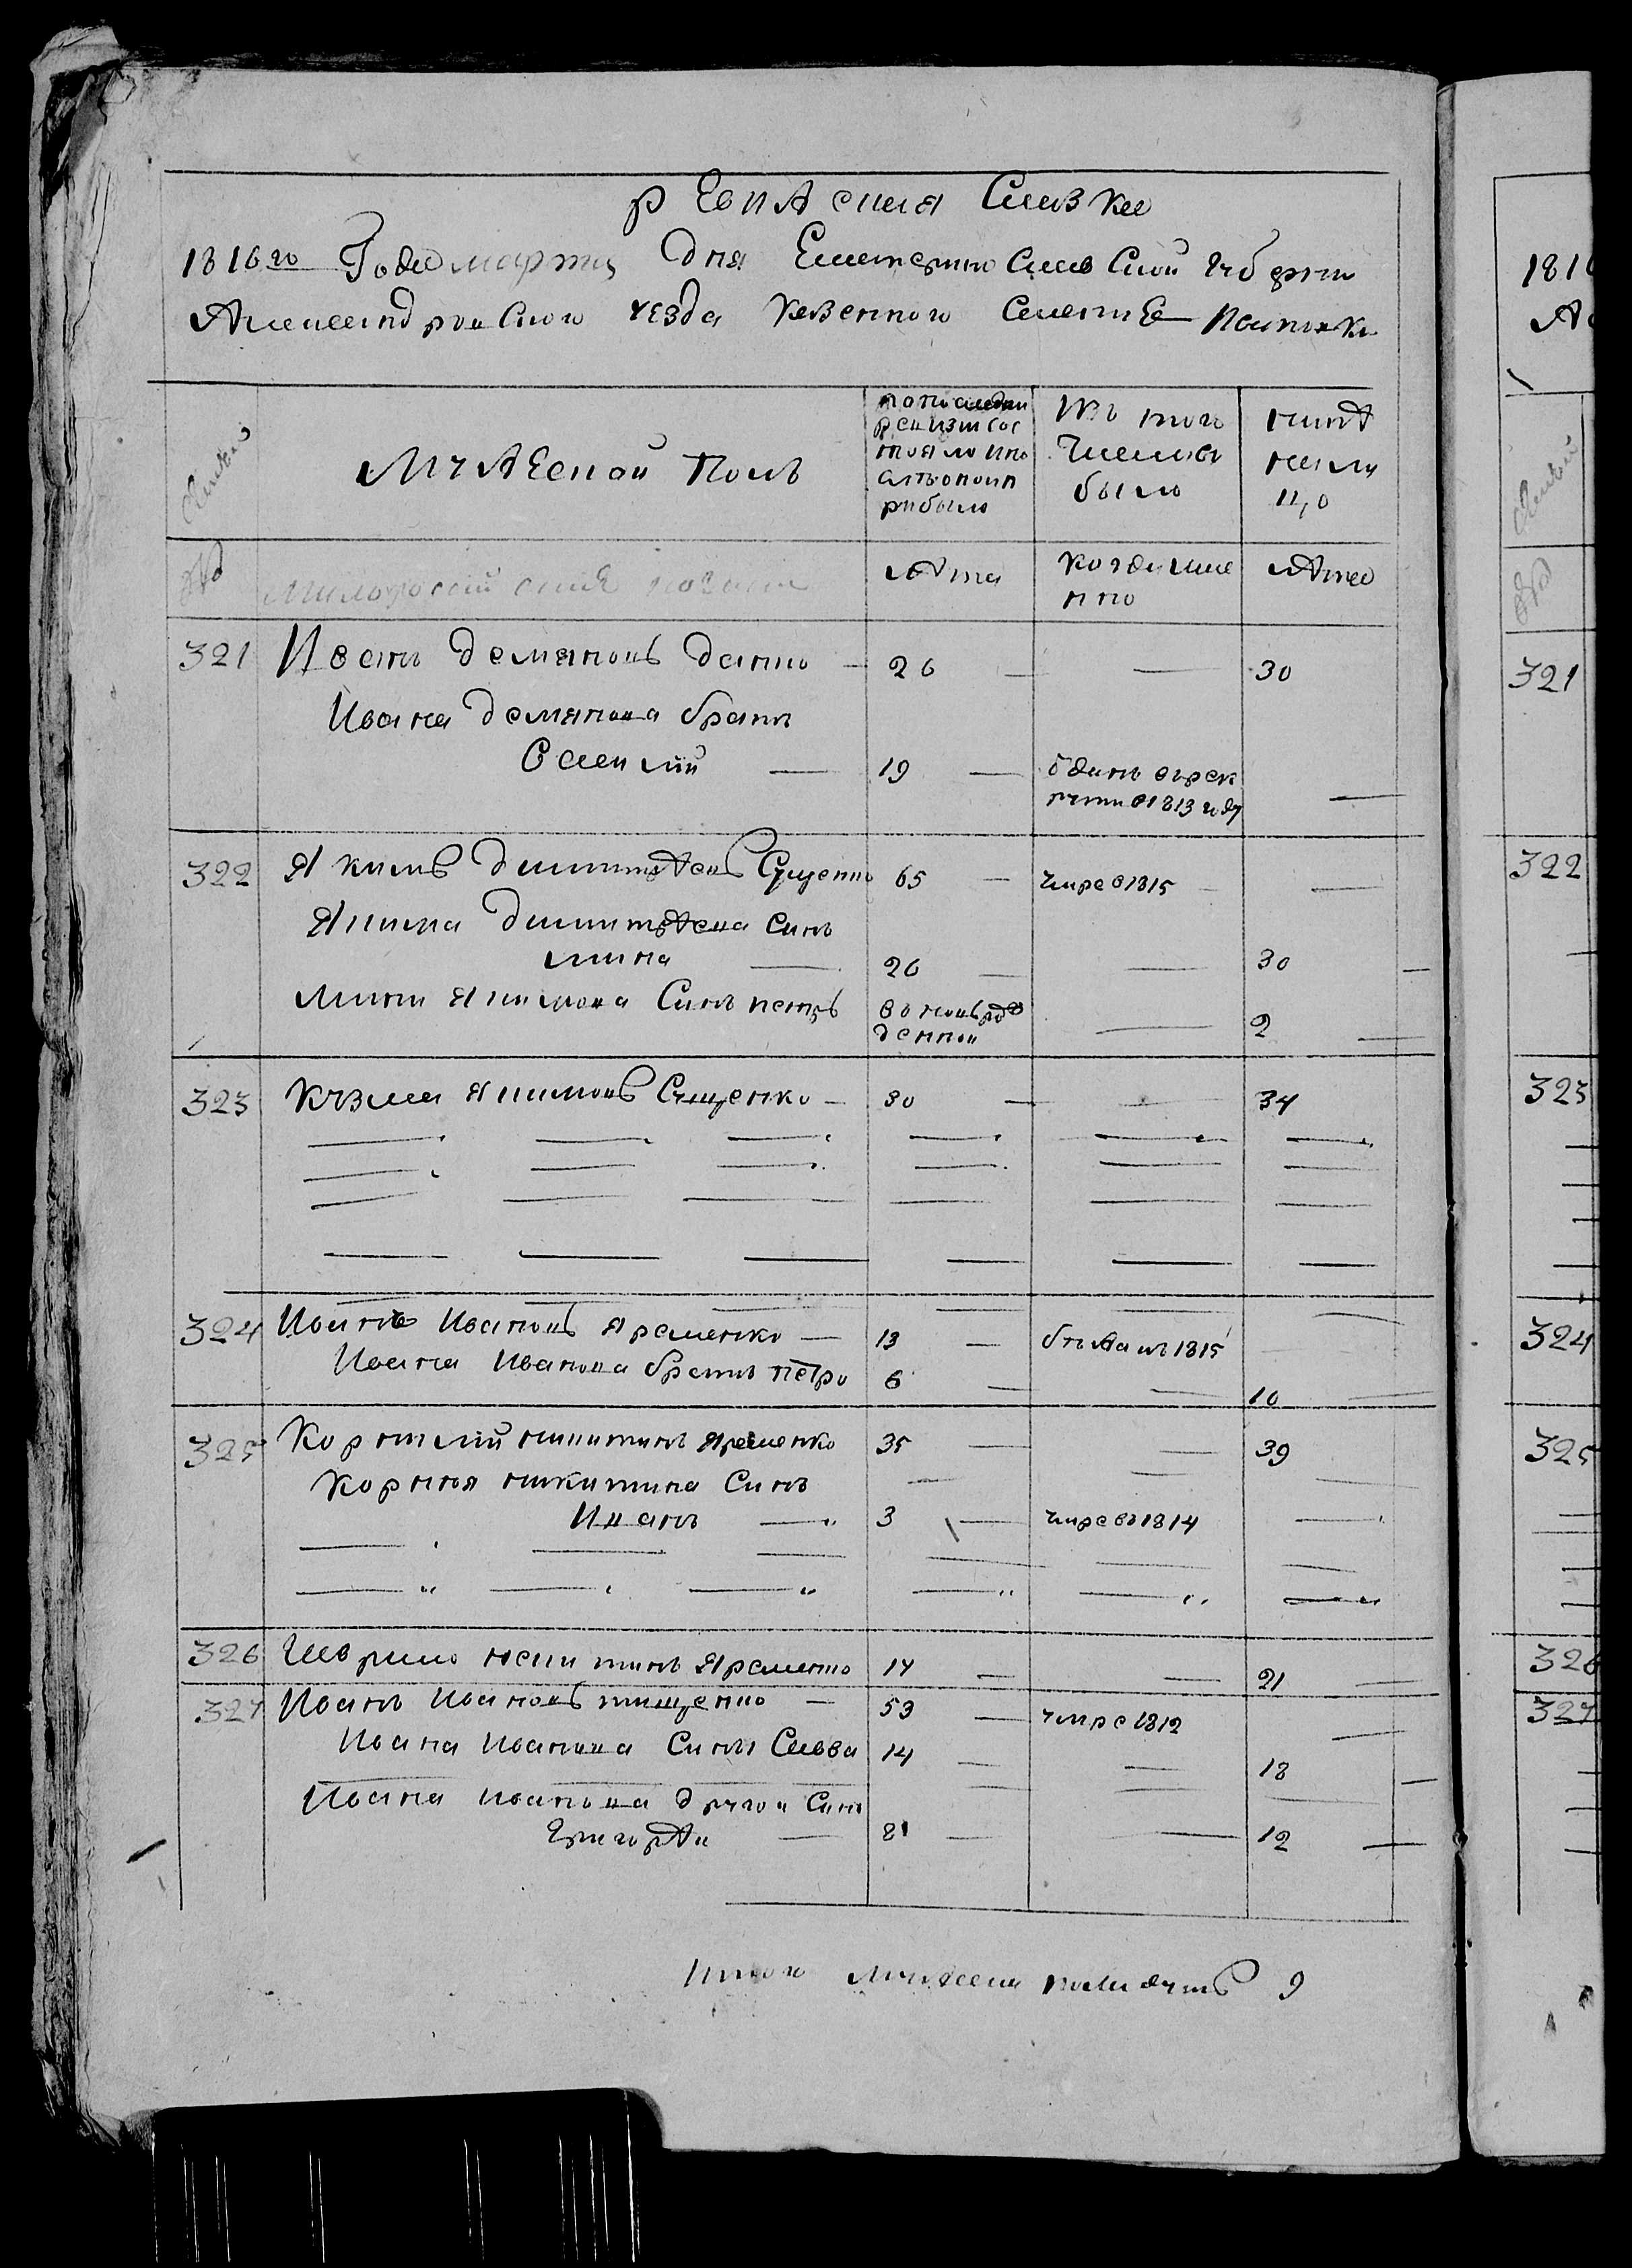 ревизская сказка
1816го Года марта дня Екатеринославской губерни
Александровского уезда казенного селения Покровки
Семьи
Мужеской Полъ
попоследни
ревизии сос
тояло ипо
слтьопоип
рибыло
Изъ того
Числа вы
было
нынѣ
нали
ц,о
№
малоросийские казаки
лѣта
когдаиме
нно
лѣта
321 Иванъ демяновъ данко — 26 — — 30
Ивана демянова братъ
Василий — 19 — ѿданъ върек
руты в1813 году —
322 Якимъ димитрѣевъ Сущенко 65 — умре в1815 —
Якима димитрѣева Синъ
мина — 26 — — 30
Мини Якимова Синъ петръ вновьро
денной — 2 —
323 Кузма Якимовъ Сущенко — 30 — — 34
324 Иванъ Ивановъ Яременко — 13 — бѣжалъ 1815
Ивана Иванова братъ петро 6 — — 10
325 Корнилий никитинъ Яременко 35 — — 39
Корнея никитина Синъ
Иванъ — 3 — умре въ1814 —
326 Гаврило никитинъ Яременко 17 — — 21
327 Иванъ Ивановъ тищенко — 53 — умре 1812 —
Ивана Иванова Синъ Савва 14 — — 18
Ивана Иванова другои Синъ
Григорѣи — 8 — — 12 —
Итого мужеска пола душъ 9
181
А
Семьи
№
321
322
323
324
325
326
327